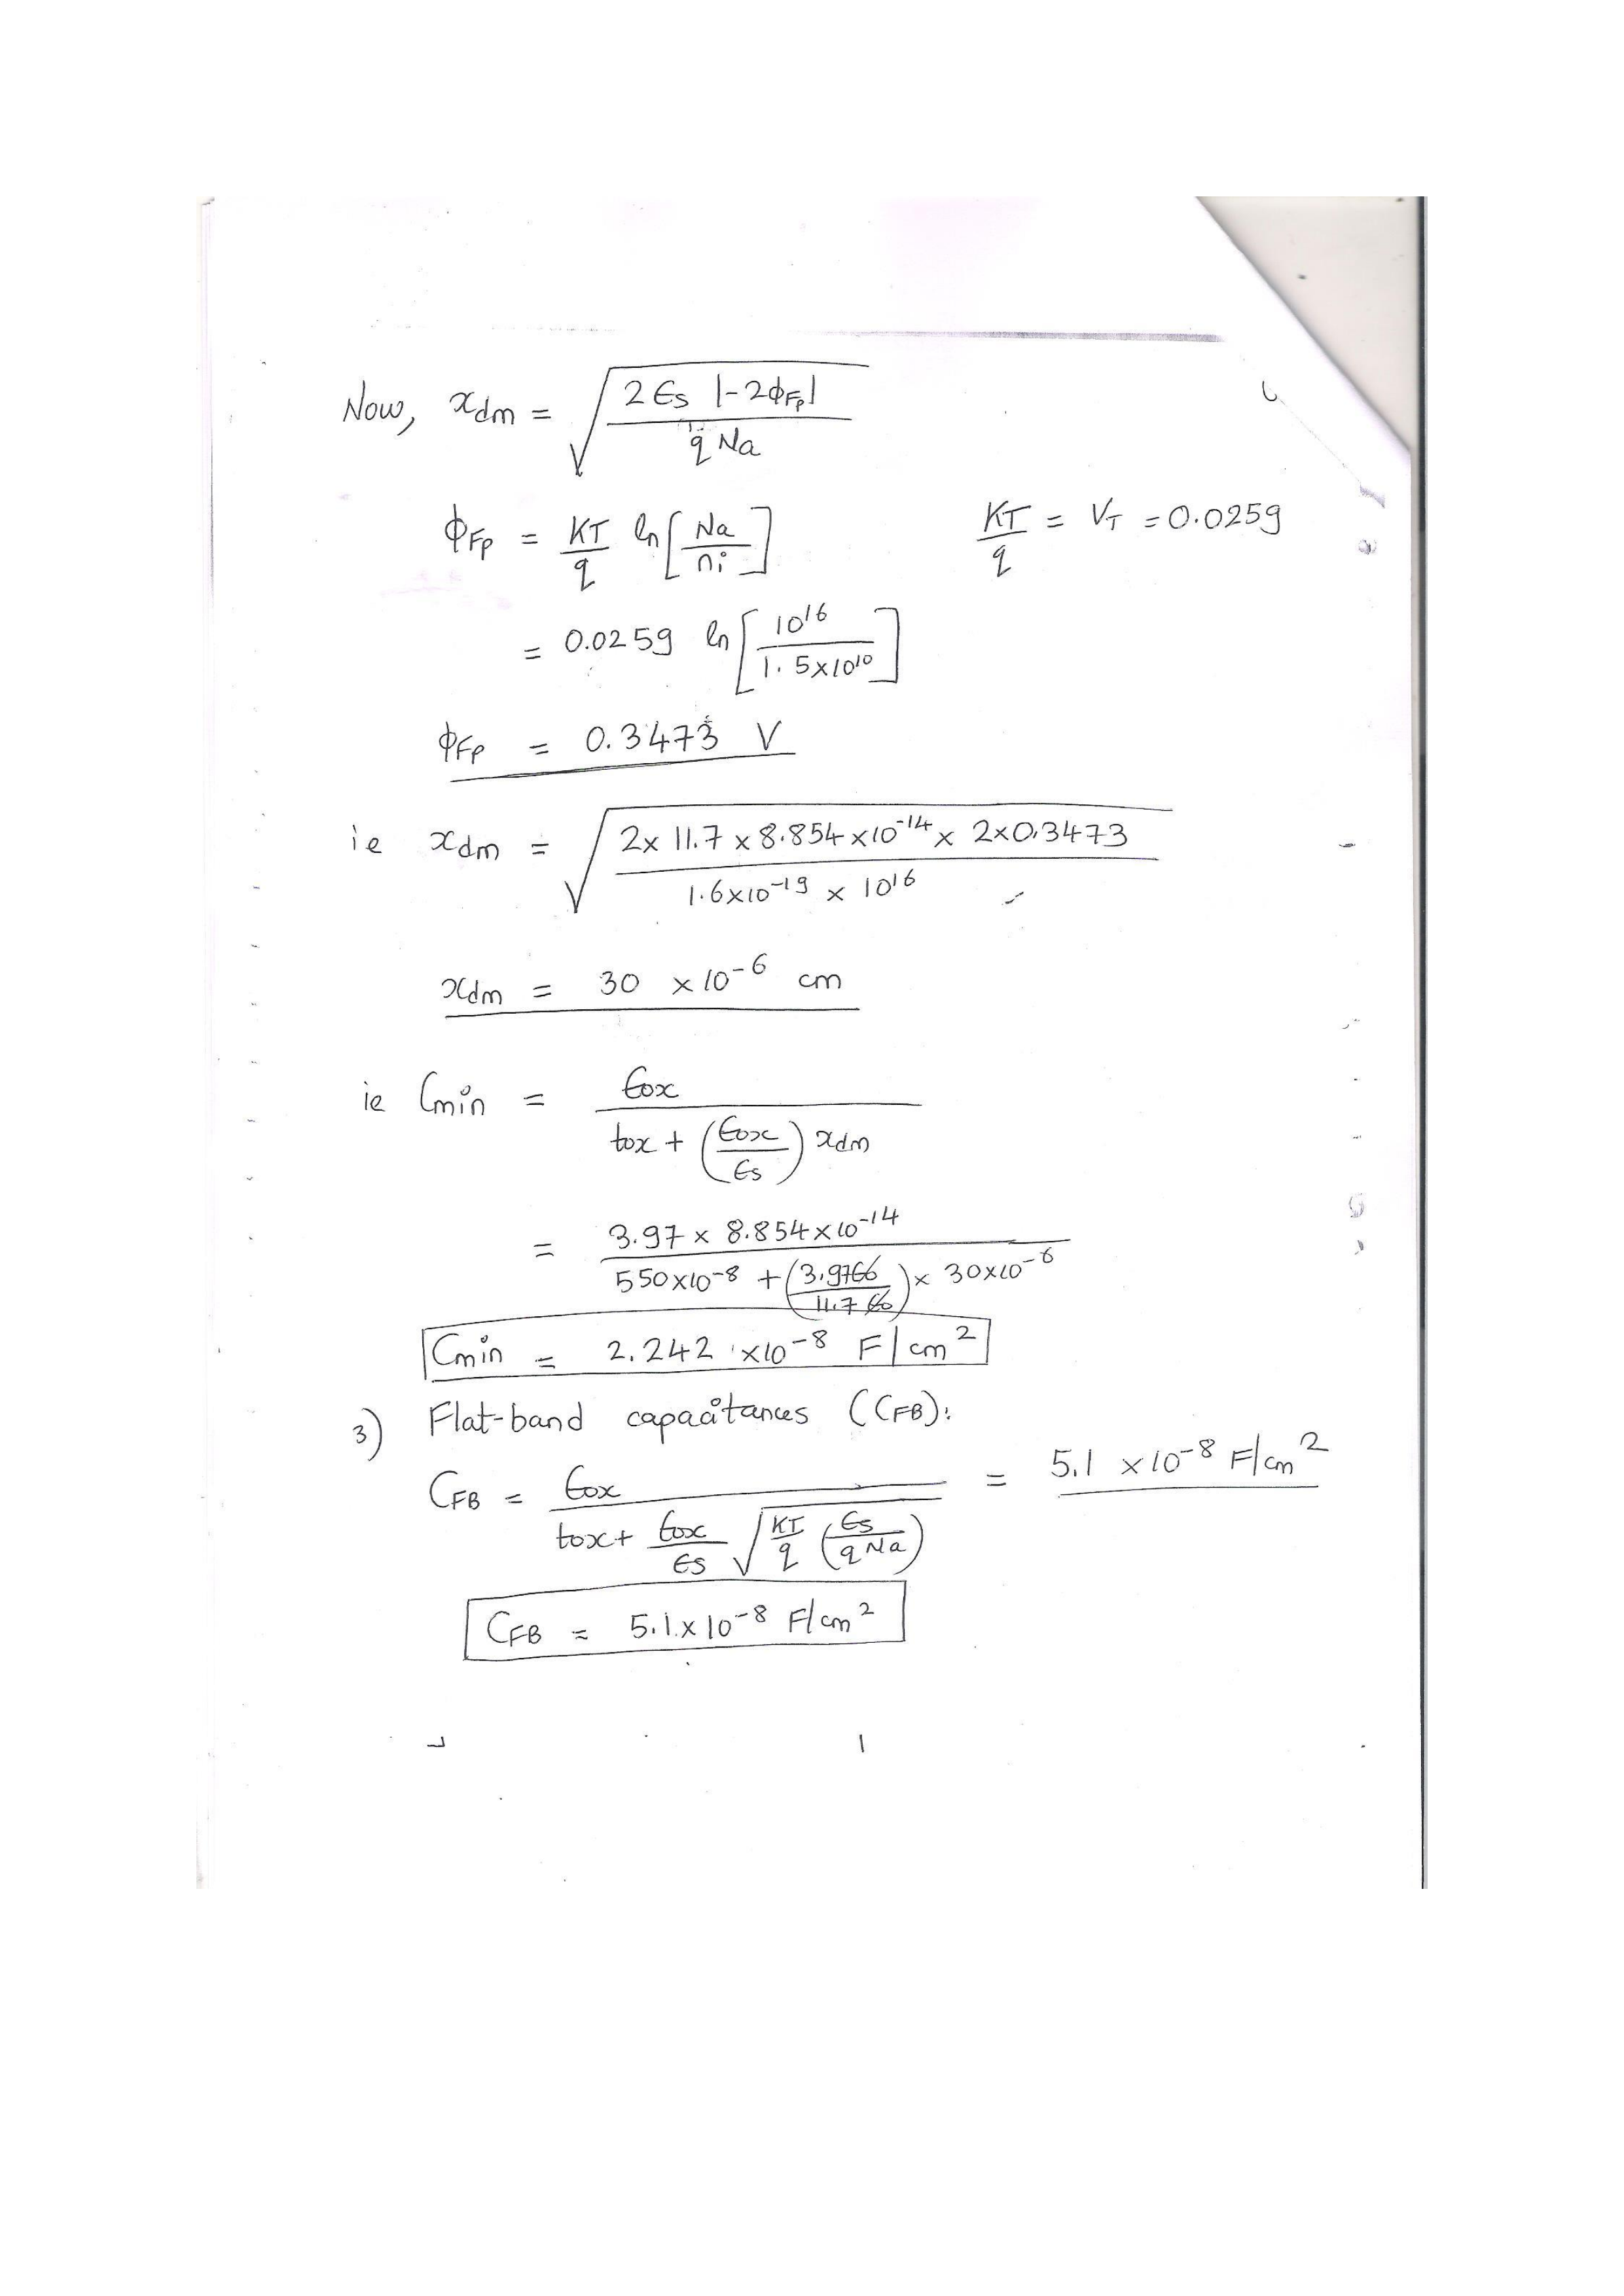 Now, xdm = √(2 ϵs |-2ϕFp| / q Na)
ϕFp = KT/q ln [Na/ni]    KT/q = VT = 0.0259
= 0.0259 ln [10^16 / 1.5×10^10]
ϕFp = 0.3473 V
ie xdm = √(2× 11.7 × 8.854 ×10^-14 × 2×0.3473 / 1.6×10^-19 × 10^16)
xdm = 30 ×10^-6 cm
ie Cmin = ϵox / tox + (ϵox/ϵs) xdm
= 3.97 × 8.854×10^-14 / 550×10^-8 + (3.97ϵo/11.7 ϵo) × 30×10^-6
Cmin = 2.242 ×10^-8 F/cm^2
3) Flat-band capacitances (CFB):
CFB = ϵox / tox + ϵox/ϵs √(KT/q (ϵs/q Na)) = 5.1 ×10^-8 F/cm^2
CFB = 5.1×10^-8 F/cm^2